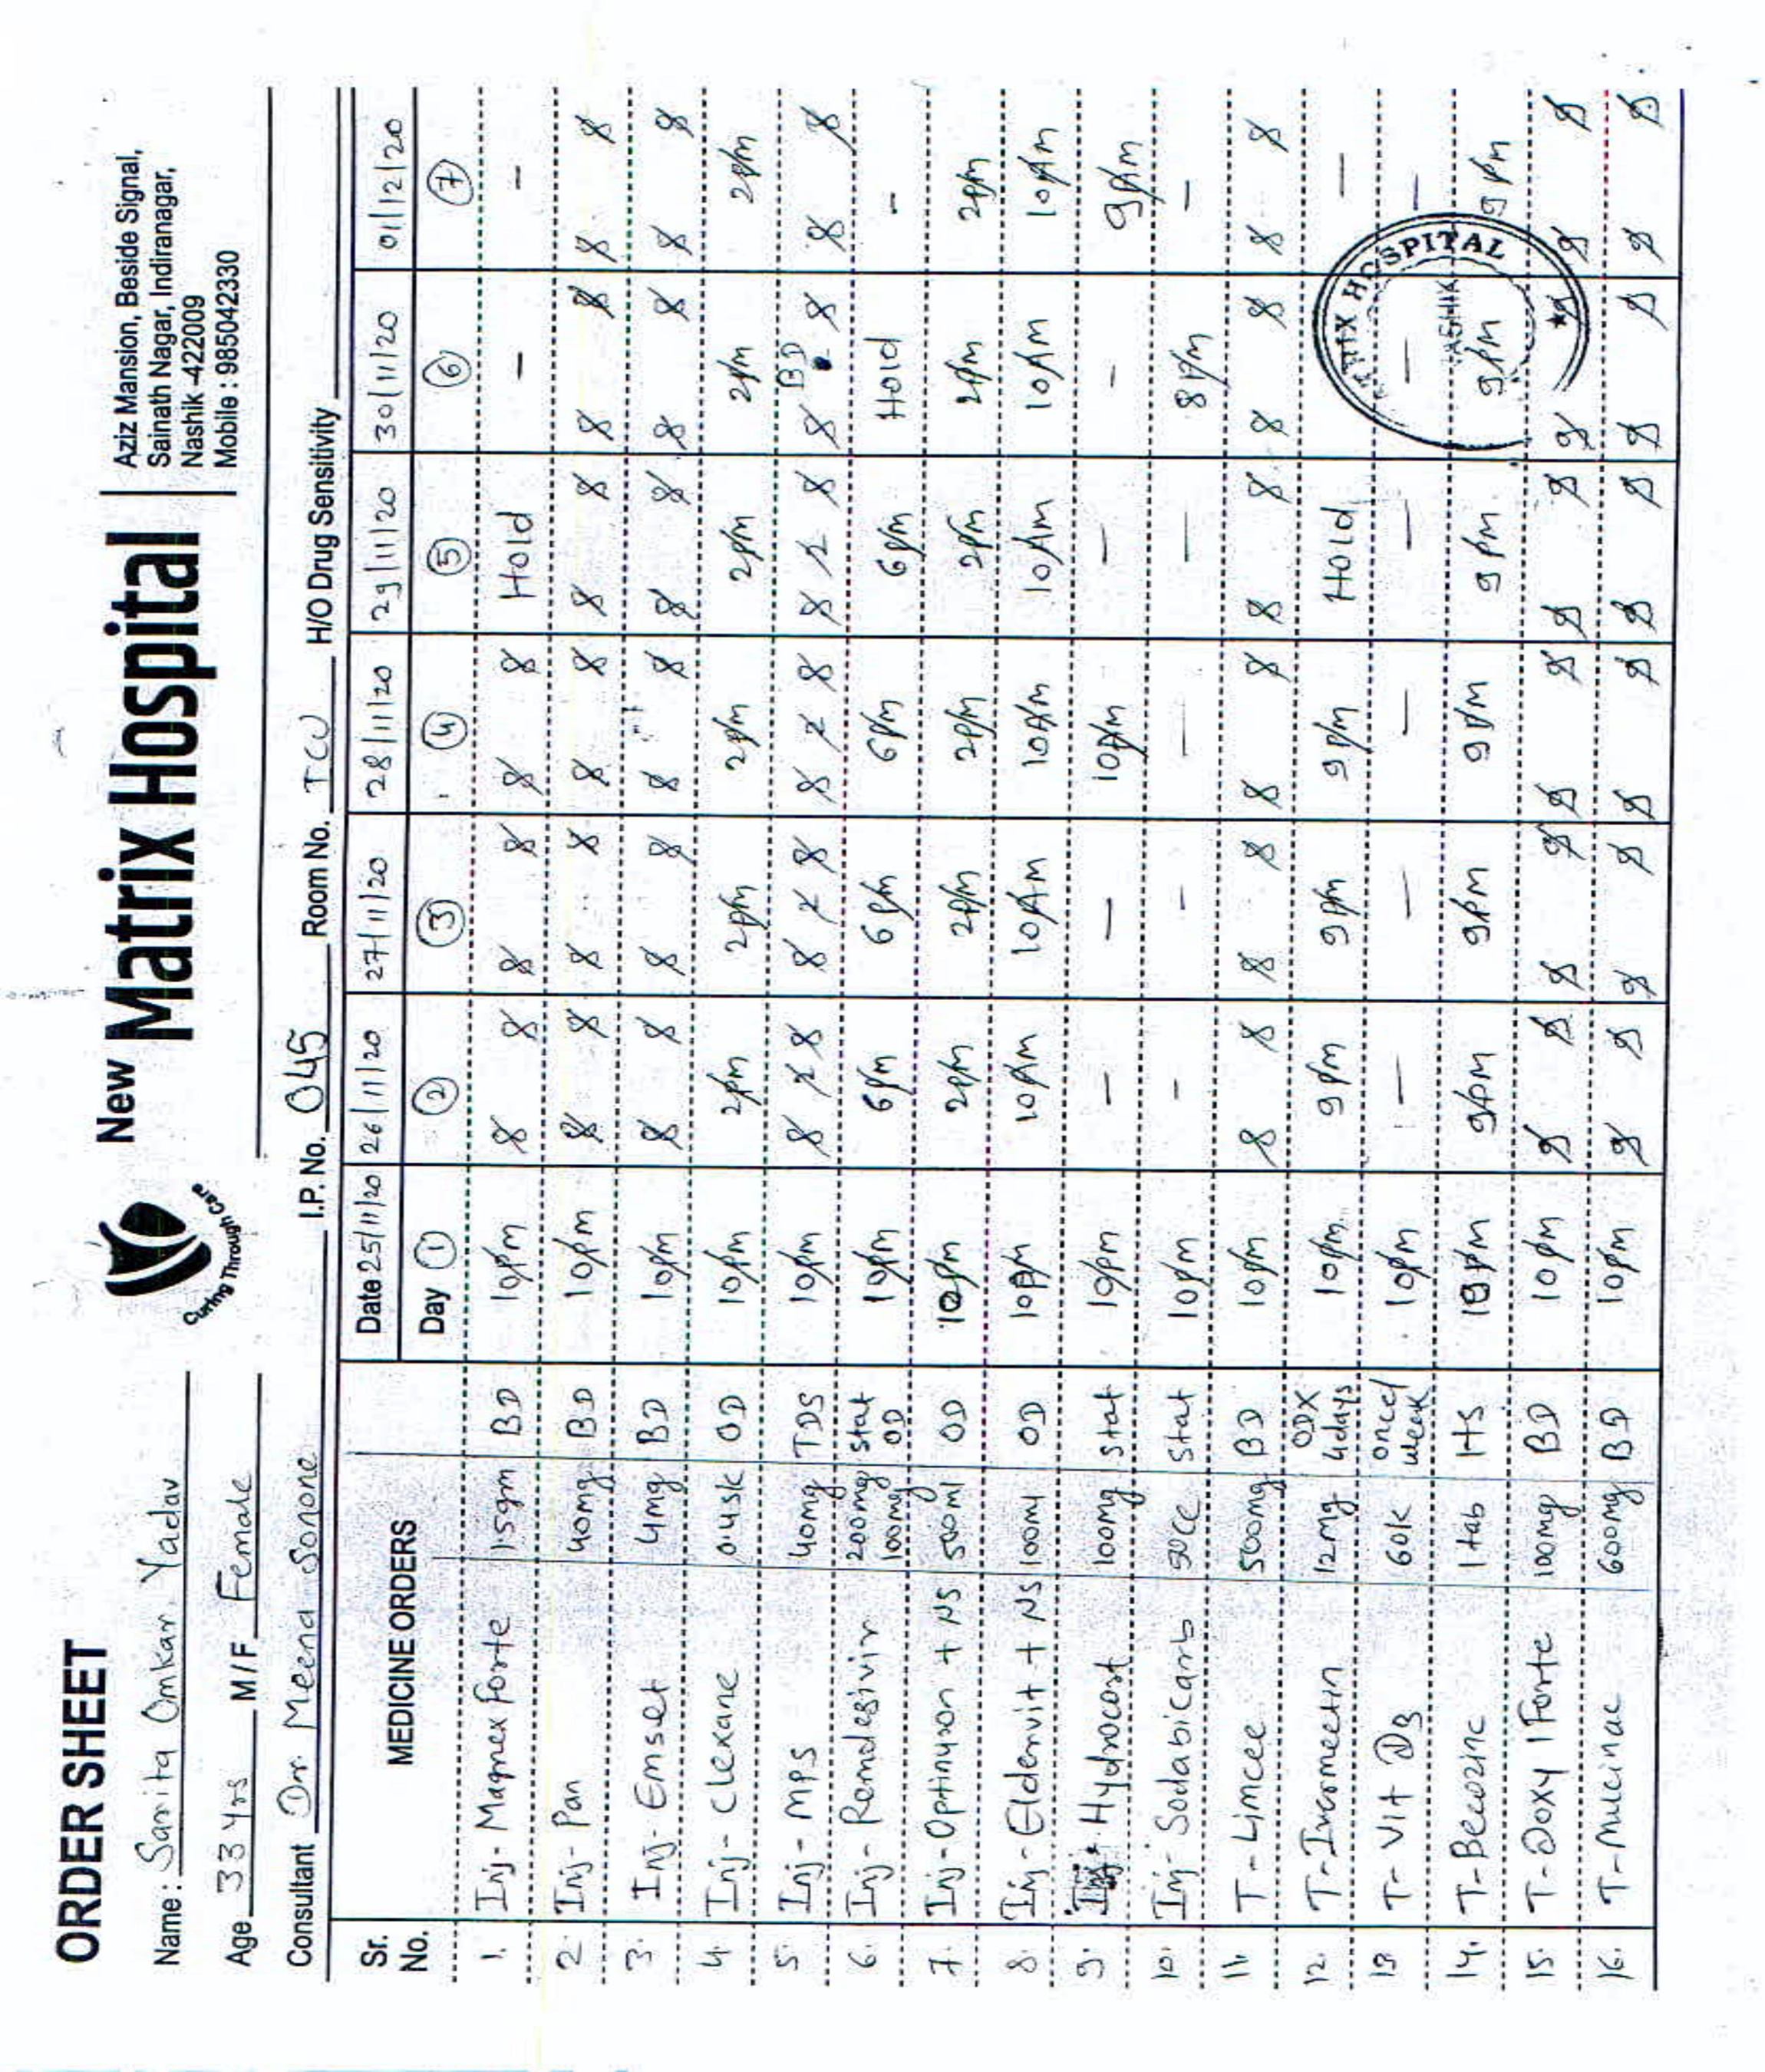 ORDER SHEET
New Matrix Hospital
Curing Through Care
Aziz Mansion, Beside Signal,
Sainath Nagar, Indiranagar,
Nashik -422009
Mobile : 985042330
Name : Sarita Omkar Yadav
Age 33 Yrs M/F Female
Consultant Dr. Meena Sonone I.P. No. 045 Room No. ICU H/O Drug Sensitivity
Sr. No. MEDICINE ORDERS Date 25/11/20 26/11/20 27/11/20 28/11/20 29/11/20 30/11/20 01/12/20
Day 1 2 3 4 5 6 7
1. Inj- Magnex Forte 1.5gm BD 10pm 8 8 8 8 8 8 Hold - -
2. Inj- Pan 40mg BD 10pm 8 8 8 8 8 8 8 8 8 8 8 8
3. Inj- Emset 4mg BD 10pm 8 8 8 8 8 8 8 8 8 8 8 8
4. Inj- Clexane OD 10pm 2pm 2pm 2pm 2pm 2pm 2pm
5. Inj- MPS 40mg TDS 10pm 8 2 8 8 2 8 8 2 8 8 2 8 8 BD 8 8 8
6. Inj- Remdesivir 200mg stat 100mg OD 10pm 6pm 6pm 6pm 6pm Hold -
7. Inj- Optinuron + NS 500ml OD 10pm 2pm 2pm 2pm 2pm 2pm 2pm
8. Inj- Eldervit + NS 100ml OD 10pm 10AM 10AM 10AM 10AM 10AM 10AM
9. Inj- Hydrocort 100mg stat 10pm - - 10pm - - 9pm
10. Inj- Sodabicarb 50cc stat 10pm - - - - 8pm -
11. T- Limcee 500mg BD 10pm 8 8 8 8 8 8 8 8 8 8 8 8
12. T- Ivermectin 12mg ODX 4days 10pm 9pm 9pm 9pm Hold -
13. T- Vit D3 60k once/week 10pm - - - - - -
14. T- Becozinc 1 tab HS 10pm 9pm 9pm 9pm 9pm 9pm 9pm
15. T- Doxy 1 Forte 100mg BD 10pm 9 9 9 9 9 9 9 9 9 9 9 9
16. T- Mucinac 600mg BD 10pm 9 9 9 9 9 9 9 9 9 9 9 9
MATRIX HOSPITAL
NASHIK